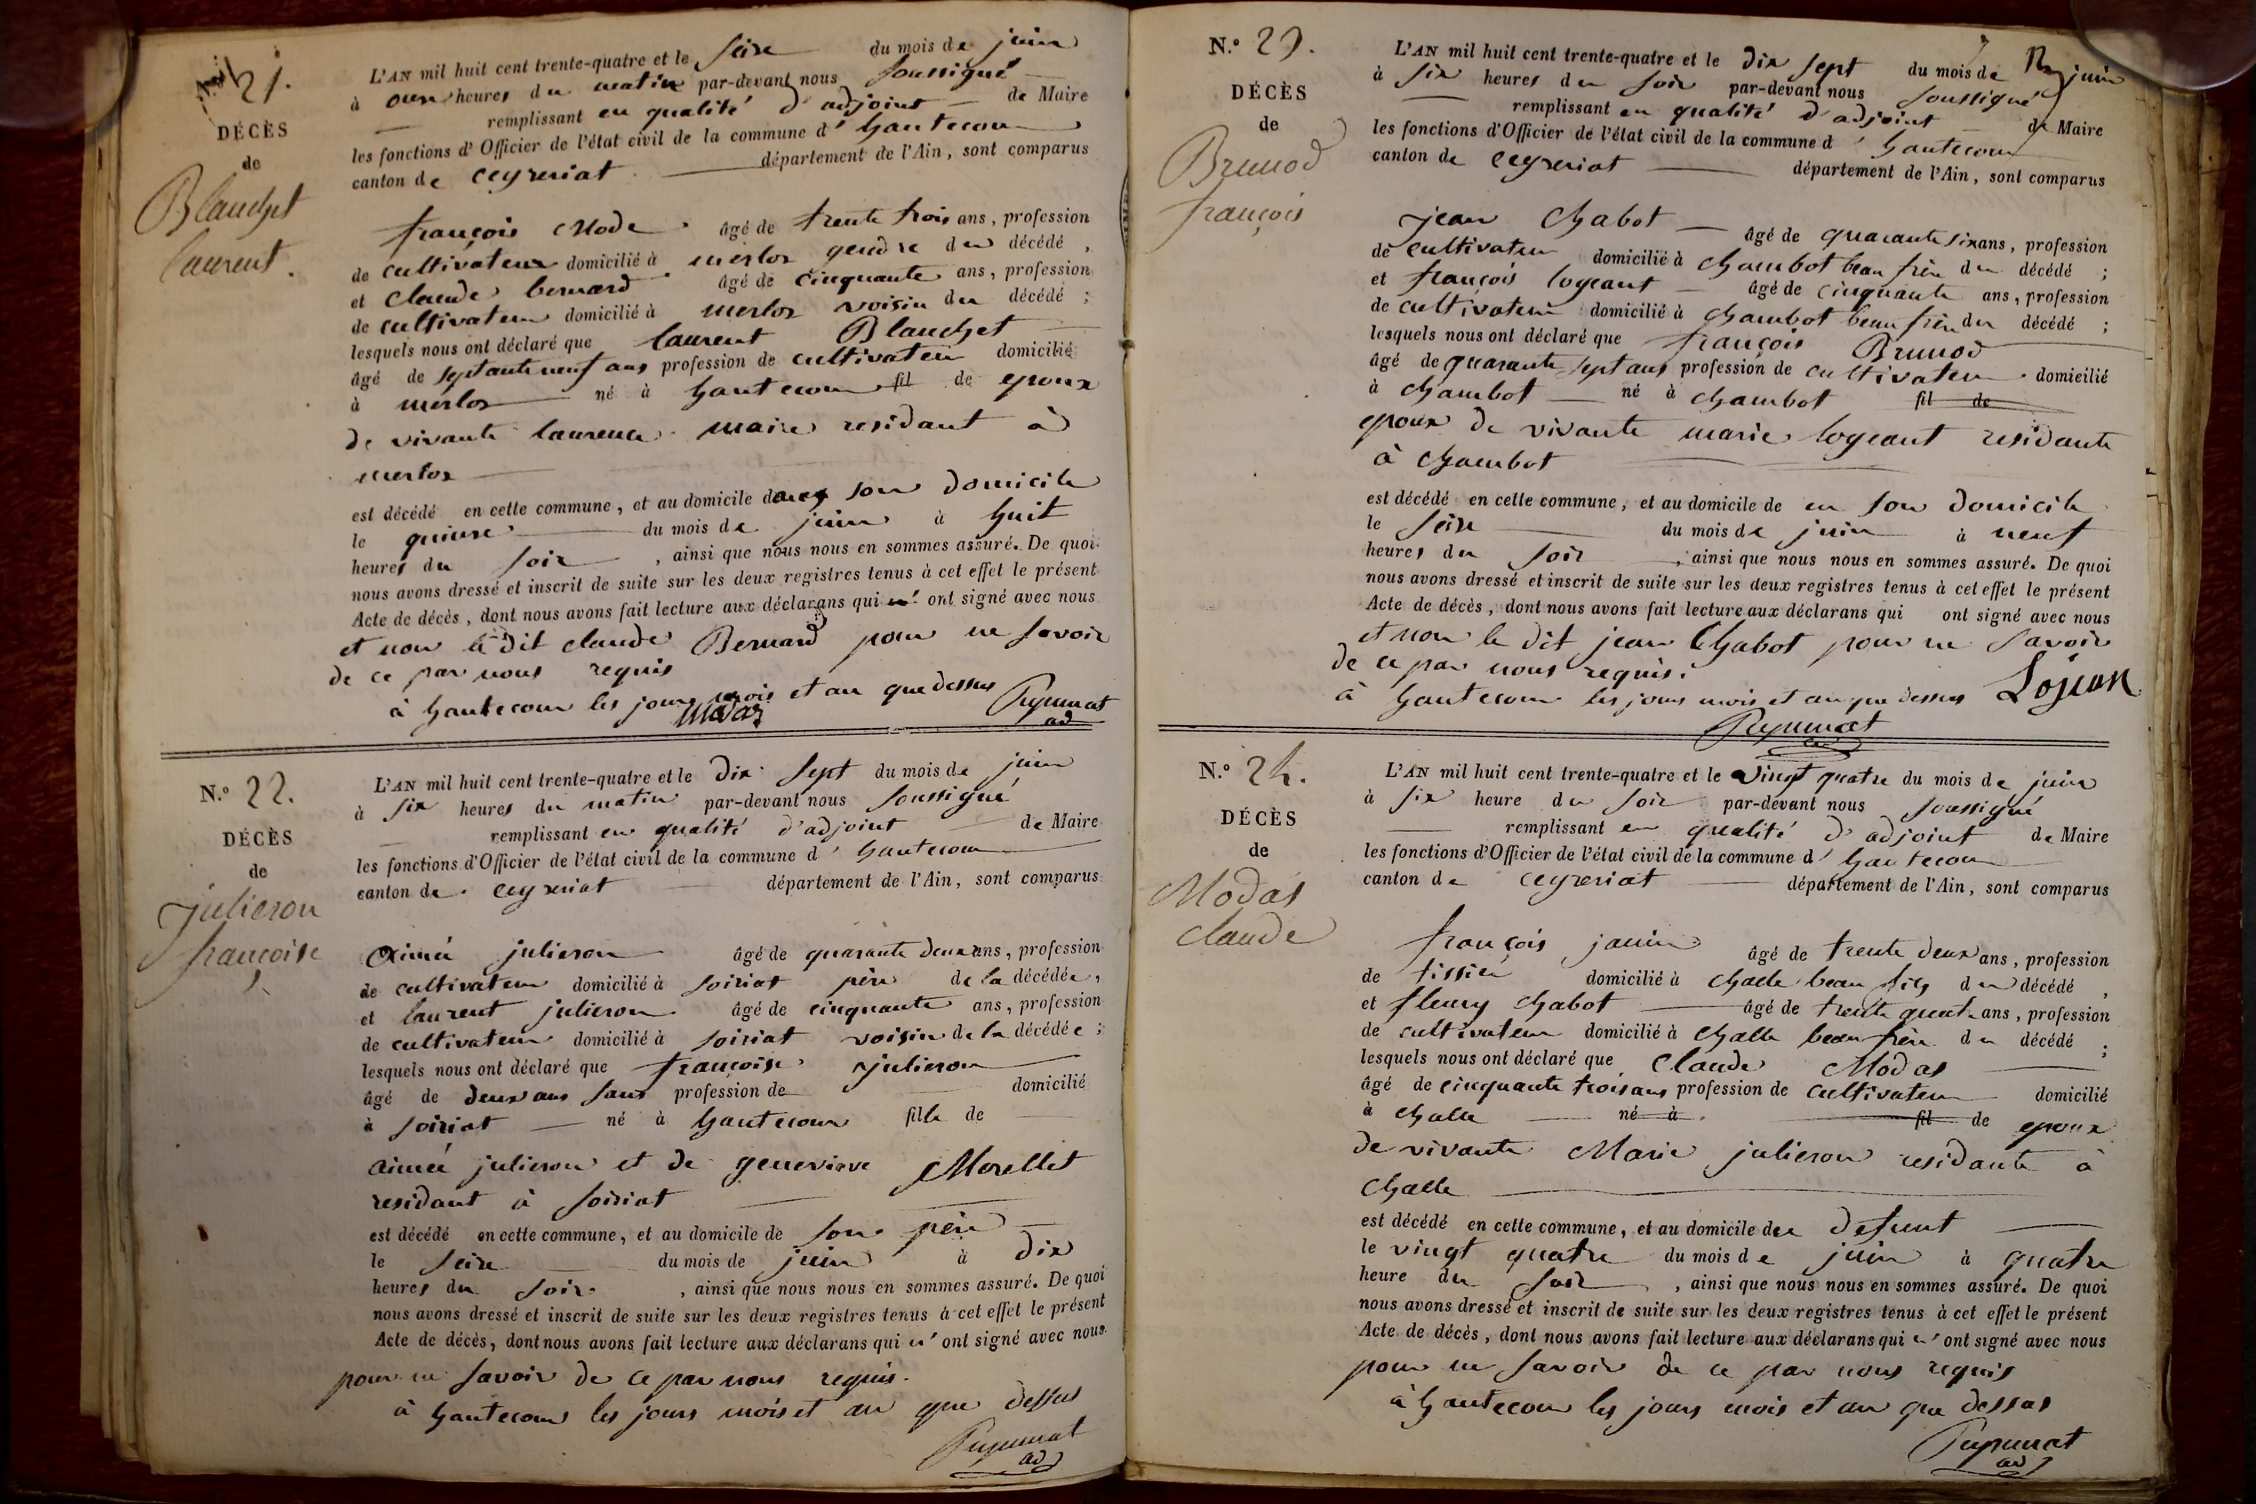 N.° 21.
DÉCÈS
de
Blanchet
laurent.
L'AN mil huit cent trente-quatre et le seize du mois de juin
à onze heures du matin par-devant nous soussigné
remplissant en qualité d'adjoint de Maire
les fonctions d'Officier de l'état civil de la commune d'hautecour
canton de ceyzeriat département de l'Ain, sont comparus
françois Modas âgé de trente trois ans, profession
de cultivateur domicilié à merloz gendre du décédé,
et Claude bernard âgé de cinquante ans, profession
de cultivateur domicilié à merloz voisin du décédé ;
lesquels nous ont déclaré que laurent Blanchet
âgé de septante neuf ans profession de cultivateur domicilié
à merloz né à hautecour fil de epoux
de vivante laurence maire residant à
merloz
est décédé en cette commune, et au domicile dans son domicile
le quinze du mois de juin à huit
heures du soir, ainsi que nous nous en sommes assuré. De quoi
nous avons dressé et inscrit de suite sur les deux registres tenus à cet effet le présent
Acte de décès, dont nous avons fait lecture aux déclarans qui ont signé avec nous
et non le dit claude Bernard pour ne savoir
de ce par nous requis
à hautecour les jours mois et an que dessus
modas
ad
N.° 22.
DÉCÈS
de
julieron
françoise
L'AN mil huit cent trente-quatre et le dix sept du mois de juin
à six heures du matin par-devant nous soussigné
remplissant en qualité d'adjoint de Maire
les fonctions d'Officier de l'état civil de la commune d'hautecour
canton de ceyzeriat département de l'Ain, sont comparus
aimée julieron âgé de quarante deux ans, profession
de cultivateur domicilié à soiriat père de la décédée,
et laurent julieron âgé de cinquante ans, profession
de cultivateur domicilié à soiriat voisin de la décédée ;
lesquels nous ont déclaré que françoise julieron
âgé de deux ans sans profession de domicilié
à soiriat né à hautecour fille de
aimée julieron et de genevieve Morellet
residant à soiriat
est décédé en cette commune, et au domicile de son père
le seize du mois de juin à dix
heures du soir, ainsi que nous nous en sommes assuré. De quoi
nous avons dressé et inscrit de suite sur les deux registres tenus à cet effet le présent
Acte de décès, dont nous avons fait lecture aux déclarans qui n'ont signé avec nous
pour ne savoir de ce par nous requis.
à hautecour les jours mois et an que dessus
ad
N.° 23.
DÉCÈS
de
Brunod
françois
L'AN mil huit cent trente-quatre et le dix sept du mois de juin
à six heures du soir par-devant nous soussigné
remplissant en qualité d'adjoint de Maire
les fonctions d'Officier de l'état civil de la commune d'hautecour
canton de ceyzeriat département de l'Ain, sont comparus
jean Chabot âgé de quarante six ans, profession
de cultivateur domicilié à chambot beau frère du décédé ;
et françois logeant âgé de cinquante ans, profession
de cultivateur domicilié à chambot beau frère du décédé ;
lesquels nous ont déclaré que françois Brunod
âgé de quarante sept ans profession de cultivateur domicilié
à chambot né à chambot fil de
epoux de vivante marie logeant residante
à chambot
est décédé en cette commune, et au domicile de en son domicile
le seize du mois de juin à neuf
heures du soir, ainsi que nous nous en sommes assuré. De quoi
nous avons dressé et inscrit de suite sur les deux registres tenus à cet effet le présent
Acte de décès, dont nous avons fait lecture aux déclarans qui ont signé avec nous
et non le dit jean Chabot pour ne savoir
de ce par nous requis.
à hautecour les jours mois et an que dessus Lojean
N.° 24.
DÉCÈS
de
Modas
claude
L'AN mil huit cent trente-quatre et le vingt quatre du mois de juin
à six heure du soir par-devant nous soussigné
remplissant en qualité d'adjoint de Maire
les fonctions d'Officier de l'état civil de la commune d'hautecour
canton de ceyzeriat département de l'Ain, sont comparus
françois janin âgé de trente deux ans, profession
de tissier domicilié à challe beau fils du décédé,
et fleury chabot âgé de trente quatre ans, profession
de cultivateur domicilié à challe beau frère du décédé ;
lesquels nous ont déclaré que Claude Modas
âgé de cinquante trois ans profession de cultivateur domicilié
à challe né à fil de epoux
de vivante Marie julieron residante à
challe
est décédé en cette commune, et au domicile du défunt
le vingt quatre du mois de juin à quatre
heure du soir, ainsi que nous nous en sommes assuré. De quoi
nous avons dressé et inscrit de suite sur les deux registres tenus à cet effet le présent
Acte de décès, dont nous avons fait lecture aux déclarans qui n'ont signé avec nous
pour ne savoir de ce par nous requis
à hautecour les jours mois et an que dessus
ad